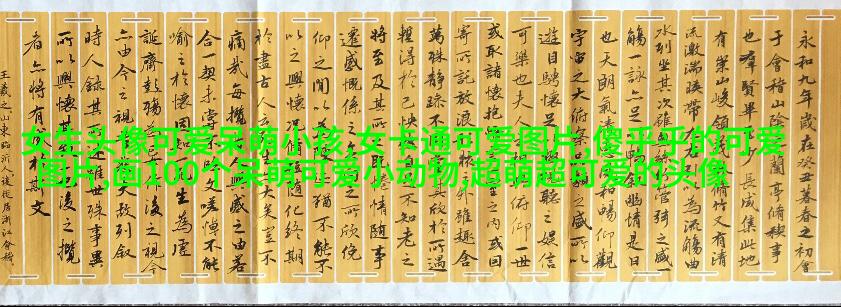 女生头像可爱呆萌小孩,女卡通可爱图片,傻乎乎的可爱
图片,画100个呆萌可爱小动物,超萌超可爱的头像
永和九年歲在癸丑暮春之初會
于會稽山陰之蘭亭脩稧事
也群賢畢至少長咸集此地
有崇山峻領茂林脩竹又有清
流激湍暎帶左右為流觴曲
水列坐其次雖無絲竹管弦之盛一
觴一詠亦足以暢敘幽情是日
也天朗氣清惠風和暢仰觀
宇宙之大俯察品類之盛所以
遊目騁懷足以極視聽之娛信
可樂也夫人之相與俯仰一世
或取諸懷抱悟言一室之內或因
寄所託放浪形骸之外雖趣舍
萬殊靜躁不同當其欣於所遇
暫得於己快然自足不知老之
將至及其所之既惓情隨事
遷感慨係之矣向之所欣俛
仰之間以為陳迹猶不能不
以之興懷況脩短隨化終期
於盡古人云死生亦大矣豈不
痛哉每攬昔人興感之由若
合一契未嘗不臨文嗟悼不能
喻之於懷固知一死生為虛
誕齊彭殤為妄作後之視今
亦由今之視昔悲夫故列敘
時人錄其所述雖世殊事異
所以興懷其致一也後之攬
者亦將有感於斯文
王羲之山東臨沂人後徙居浙江會稽